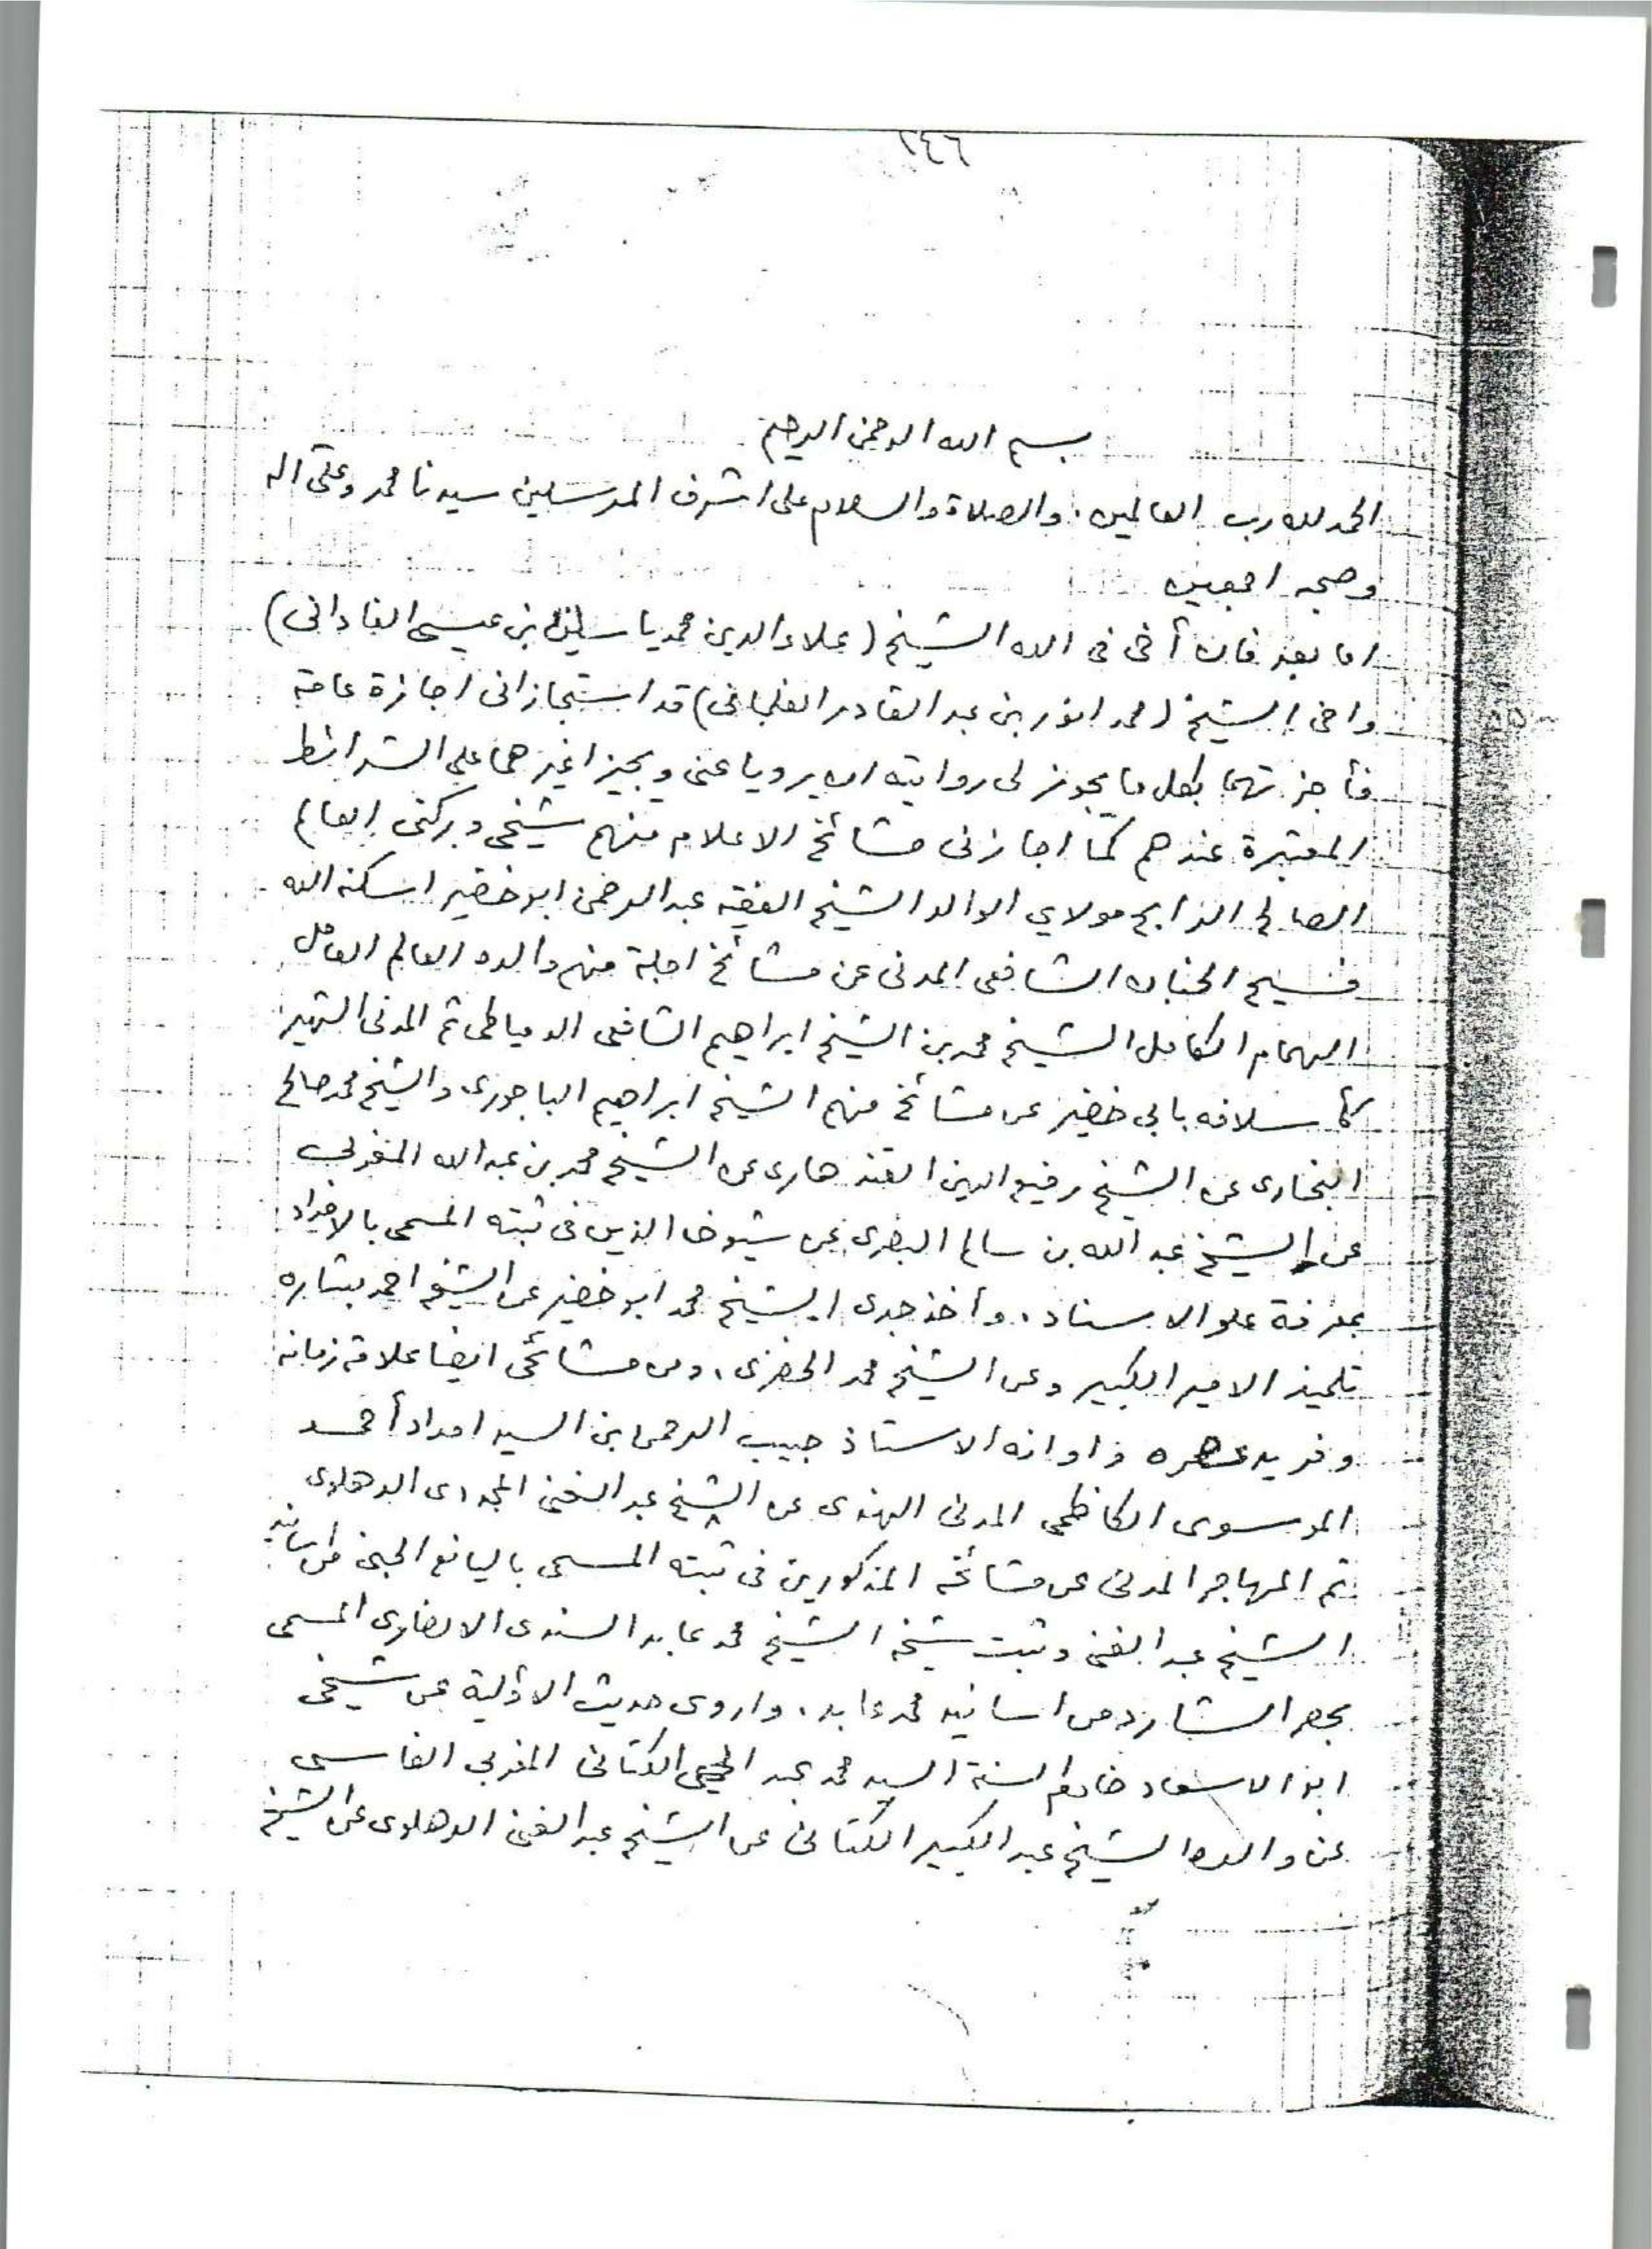 ١٤٦
بسم الله الرحمن الرحيم
الحمد لله رب العالمين، والصلاة والسلام على اشرف المرسلين سيدنا محمد وعلى اله
وصحبه اجمعين
اما بعد فان أخى فى الله الشيخ (علاء الدين محمد ياسين بن عيسى الفادانى)
واخى الشيخ (محمد انور بن عبد القادر الفلمبانى) قد استجازانى اجازة عامة
فأجزتهما بكل ما يجوز لى روايته ان يرويا عنى ويجيزا غيرهما على الشرائط
المعتبرة عندهم كما اجازنى مشائخ الاعلام منهم شيخى وبركتى العالم
الصالح مولاي الوالد الشيخ الفقيه عبد الرحمن ابو خضير اسكنه الله
فسيح الجنان الشافعى المدنى عن مشائخ اجلة منهم والده العالم العامل
الهمام الكامل الشيخ محمد بن الشيخ ابراهيم الشافعى الدمياطى ثم المدنى الشهير
كأسلافه بابى خضير عن مشائخ منهم الشيخ ابراهيم الباجورى، والشيخ محمد صالح
البخارى عن الشيخ رفيع الدين القندهارى عن الشيخ محمد بن عبد الله المغربى
عن الشيخ عبد الله بن سالم البصرى عن شيوخه الذين فى ثبته المسمى بالامداد
بمعرفة علو الاسناد، وأخذ جدى الشيخ محمد ابو خضير عن الشيخ احمد بشاره
تلميذ الامير الكبير وعن الشيخ محمد الخضرى، ومن مشائخى ايضا علامة زمانه
وفريد عصره واوانه الاستاذ حبيب الرحمن بن السيد امداد أحمد
الموسوى الكاظمى المدنى الهندى عن الشيخ عبد الغنى المجددى الدهلوى
ثم المهاجر المدنى عن مشائخه المذكورين فى ثبته المسمى باليانع الجنى من اسانيد
الشيخ عبد الغنى وثبت شيخه الشيخ محمد عابد السندى الانصارى المسمى
بحصر الشارد من اسانيد محمد عابد، واروى حديث الاولية عن شيخى
ابو الاسعاد خادم السنة السيد محمد عبد الحي الكتانى المغربى الفاسى
عن والده الشيخ عبد الكبير الكتانى عن الشيخ عبد الغنى الدهلوى عن الشيخ